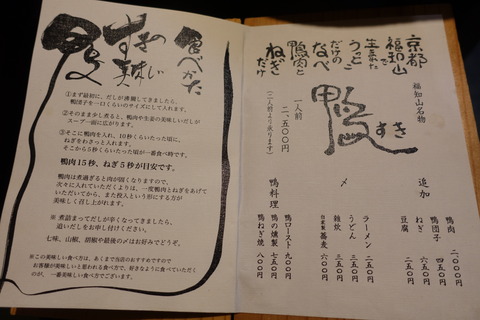 鴨すきの
美味しい
食べかた
①まず最初に、だしが沸騰してきましたら、
鴨団子を一口くらいのサイズにして入れます。
②そのまま少し煮ると、鴨肉や生姜の美味しいだしが
スープ一面に広がります。
③そこに鴨肉を入れ、10秒くらいたった頃に、
ねぎをわさっと入れます。
そこから5秒くらいたった頃が一番食べ時です。
鴨肉15秒、ねぎ5秒が目安です。
鴨肉は煮過ぎると肉が固くなりますので、
次々に入れていただくよりは、一度鴨肉とねぎをあげて
いただいてから、また投入という形にする方が
美味しく召し上がれます。
※ 煮詰まってだしが辛くなってきましたら、
追いだしをお申し付けください。
七味、山椒、胡椒や最後の〆はお好みでどうぞ。
※この美味しい食べ方は、あくまで当店のおすすめですので
お客様が美味しいと思われる食べ方で、好きなように食べていただく
のが、一番美味しい食べ方でございます。
京都
福知山で
生まれた
うっとこ
だけの
なべ
鴨肉と
ねぎ
だけ
福知山名物
鴨すき
一人前
二、五〇〇円
(二人前より承ります)
追加
鴨肉 二、〇〇〇円
鴨団子 四五〇円
ねぎ 三五〇円
豆腐 二五〇円
〆
ラーメン 二五〇円
うどん 二五〇円
雑炊 三五〇円
自家製蕎麦 六〇〇円
鴨料理
鴨ロースト 九〇〇円
鴨の燻製 七五〇円
鴨ねぎ焼 八〇〇円